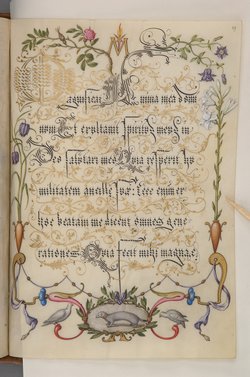 Magnificat Anima mea dom
num Et exultavit Spiritus meus in
Deo salutari meo Quia respexit hu
militatem ancillę suę: Ecce enim ex
hoc beatam me dicent omnes gene
rationes Quia fecit mihi magna,